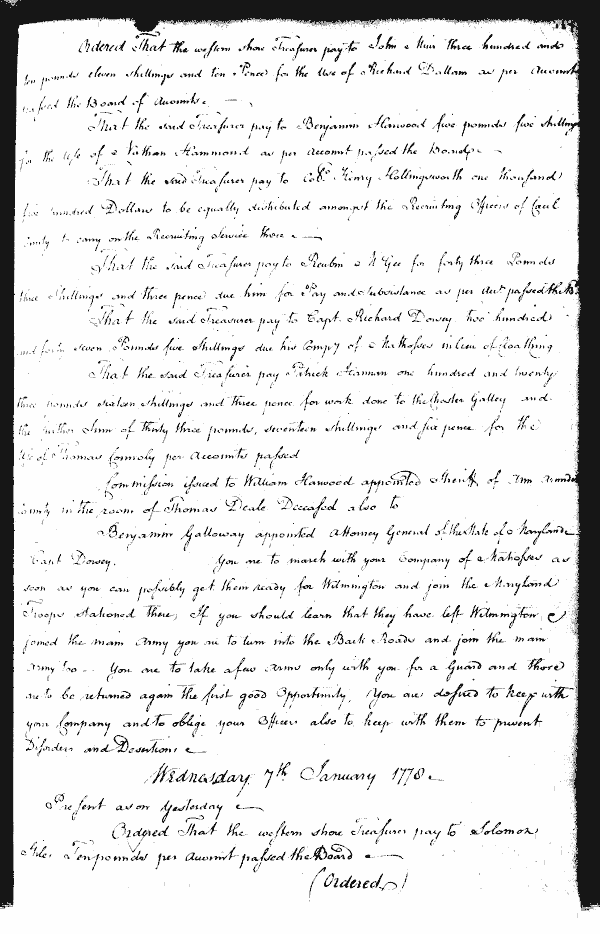 Ordered That the western shore Treasurer pay to John Muir three hundred and
ten pounds eleven shillings and ten Pence for the Use of Richard Dallam as per Accounts
passed the Board of Accounts.
That the said Treasurer pay to Benjamin Harwood five pounds five shillings
for the Use of Nathan Hammond as per Account passed the Board.
That the said Treasurer pay to Colo. Henry Hollingsworth one thousand
five hundred Dollars to be equally distributed amongst the Recruiting Officers of Cæcil
County to carry on the Recruiting Service there
That the said Treasurer pay to Reubin McGee for forty three Pounds
three Shillings and three pence due him for Pay and Subsistance as per Acct. passed the Bd.
That the said Treasurer pay to Capt. Richard Dorsey two hundred
and forty seven Pounds five Shillings due his Compy of Matrosses in lieu of Cloathing
That the said Treasurer pay Patrick Hannan one hundred and twenty
three pounds sixteen shillings and three pence for work done to the Chester Galley and
the further Sum of thirty three pounds, seventeen shillings and six pence for the
Use of Thomas Connoly per Accounts passed
Commission issued to William Harwood appointed Sheriff of Ann Arundel
County in the room of Thomas Deale Deceased also to
Benjamin Galloway appointed Attorney General of the State of Maryland
Capt Dorsey. You are to march with your Company of Matrosses as
soon as you can possibly get them ready for Wilmington and join the Maryland
Troops stationed there, If you should learn that they have left Wilmington &
joined the main Army you are to turn into the Back Roads and join the main
Army so. You are to take a few Arms only with you for a Guard and those
are to be returned again the first good Opportunity, You are desired to keep with
your Company and to oblige your Officers also to keep with them to prevent
Disorders and Desertions
Wednesday 7th January 1778
Present as on Yesterday
Ordered That the western shore Treasurer pay to Solomon
Ten pounds per Account passed the Board
(Ordered)